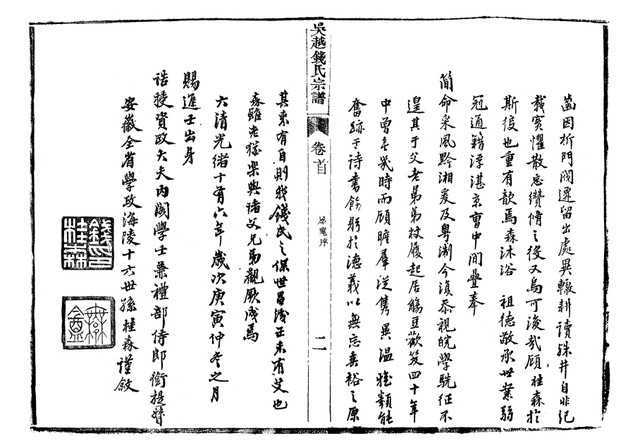 因析門閥遷留出處異轍耕讀殊井自非紀
載實懼散忘纘脩之後又烏可後哉顧桂森於
斯役也重有歉焉森沐浴 祖德敬承世業弱
冠通籍浮湛京曹中間疊奉
簡命采風黔湘爰及粵澥今復忝視皖學駪征不
遑其于父老昆弟杖履起居觴豆歡笑四十年
中曾有幾時而顧瞻羣從雋異溫雅類能
奮跡于詩書飭躬於德義以無忘裕之原
吳越錢氏宗譜
卷首
序
二
其來有自則我錢氏之保世昌正未有艾也
森雖老猶樂與諸父兄觀厥成焉
大清光緒十有六年歲次庚寅仲冬之月
賜進士出身
誥授資政大夫內閣學士兼禮部侍郎銜提督
安徽全省學政海陵十六世孫桂森謹敘
錢印桂森